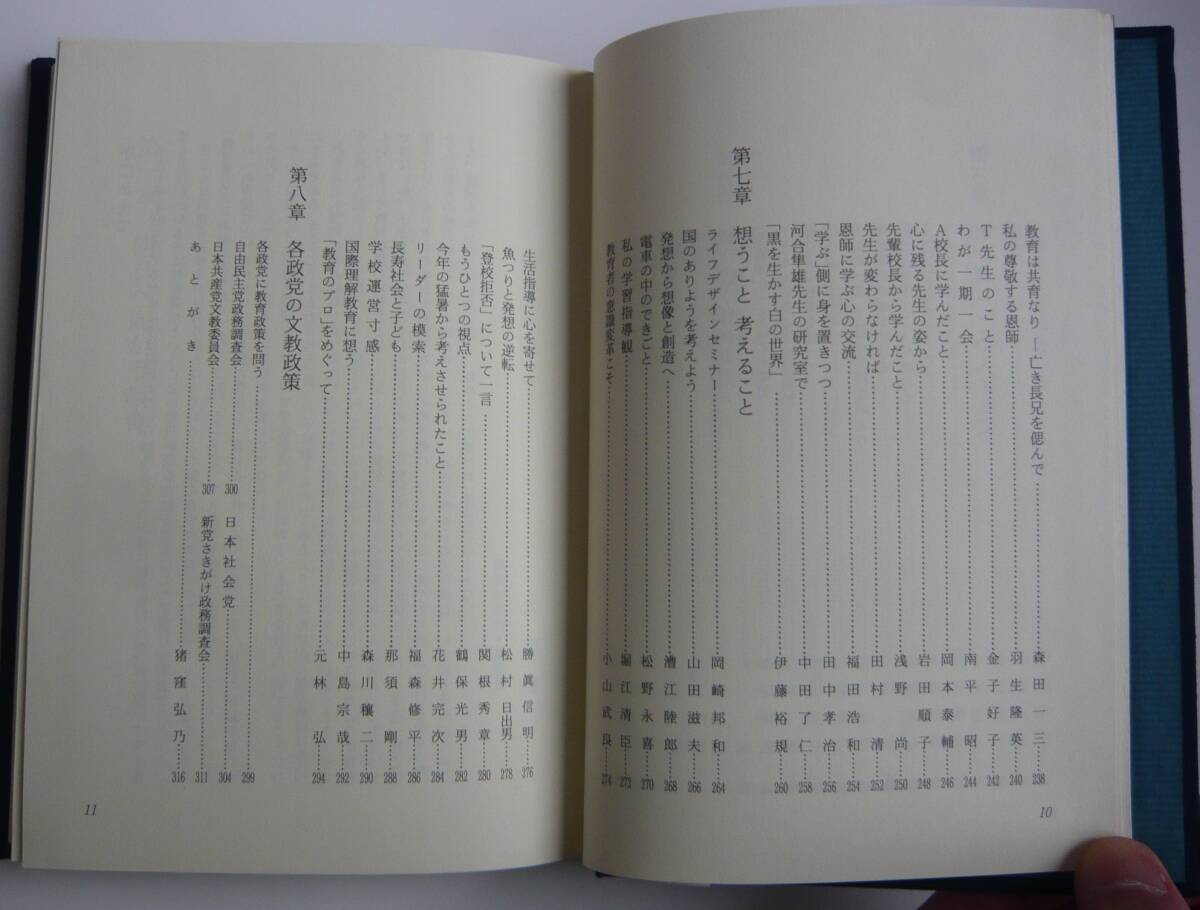 教育は共育なり――亡き長兄を偲んで……森田一三……238
私の尊敬する恩師……羽生隆英……240
T先生のこと……金子好子……242
わが一期一会……南平昭……244
A校長に学んだこと……岡本泰輔……246
心に残る先生の姿から……岩田順子……248
先輩校長から学んだこと……浅野尚……250
先生が変わらなければ……田村清……252
恩師に学ぶ心の交流……福田浩和……254
「学ぶ」側に身を置きつつ……田中孝治……256
河合隼雄先生の研究室で……中田了仁……258
「黒を生かす白の世界」……伊藤裕規……260
第七章 想うこと 考えること
ライフデザインセミナー……岡崎邦和……264
国のありようを考えよう……山田滋夫……266
発想から想像と創造へ……漕江陸郎……268
電車の中のできごと……松野永喜……270
私の学習指導観……堀江清臣……273
教育者の意識変革こそ……小山武良……274
10
生活指導に心を寄せて……勝眞信明……276
魚つりと発想の逆転……松村日出男……278
「登校拒否」について一言……関根秀章……280
もうひとつの視点……鶴保光男……282
今年の猛暑から考えさせられたこと……花井完次……284
リーダーの模索……福森修平……286
長寿社会と子ども……那須剛……288
学校運営寸感……森川穰二……290
国際理解教育に想う……中島宗哉……292
「教育のプロ」をめぐって……元林弘……294
第八章 各政党の文教政策
各政党に教育政策を問う……299
自由民主党政務調査会……300 日本社会党……304
日本共産党文教委員会……307 新党さきがけ政務調査会……311
あとがき……猪窪弘乃……316
11